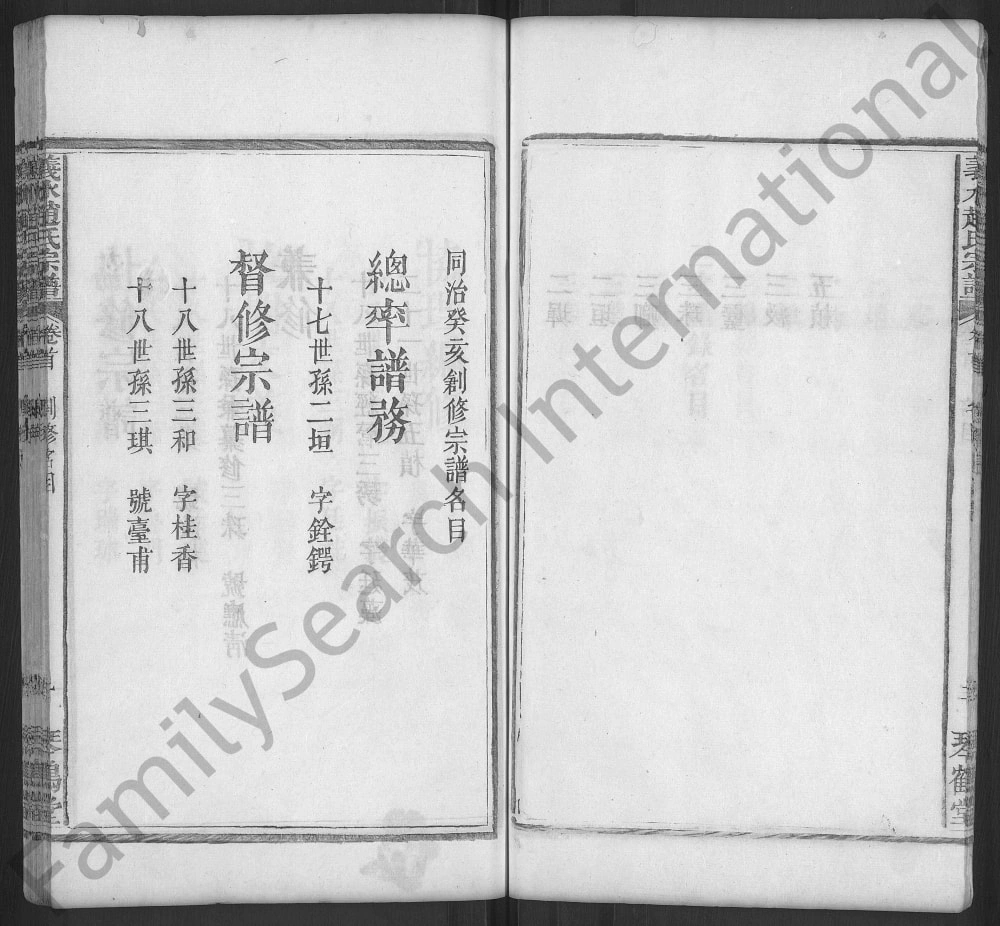 義水趙氏宗譜
琴鶴堂
同治癸亥創修宗譜名目
總率譜務
十七世孫二垣 字銓鍔
督修宗譜
十八世孫三和 字桂香
十八世孫三琪 號臺甫
義水趙氏宗譜 卷首
琴鶴堂
FamilySearch International